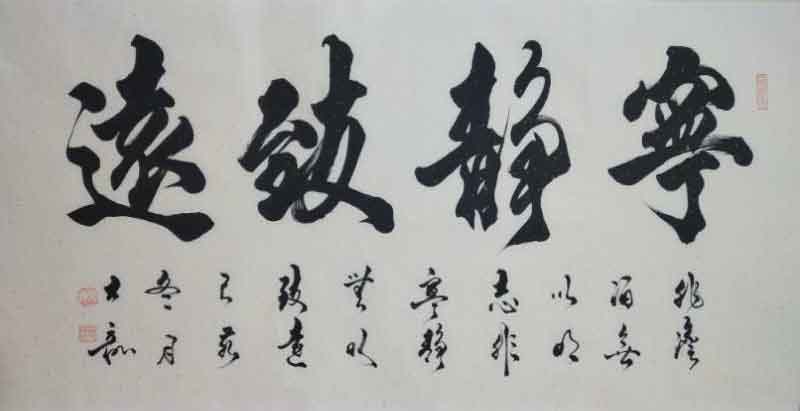 寧靜致遠
非澹
泊無
以明
志非
寧靜
無以
致遠
己亥
冬月